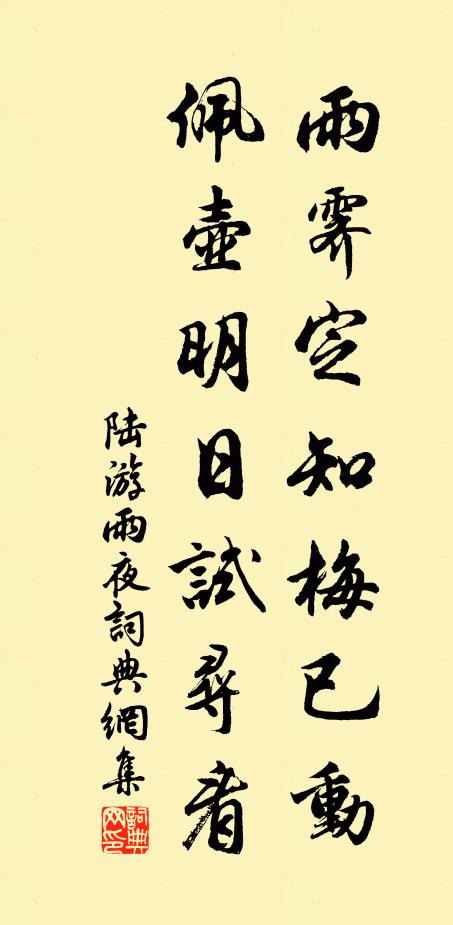 雨霁定知梅已動
佩壺明日試尋看
陆游雨夜詞典網集
詞典网印